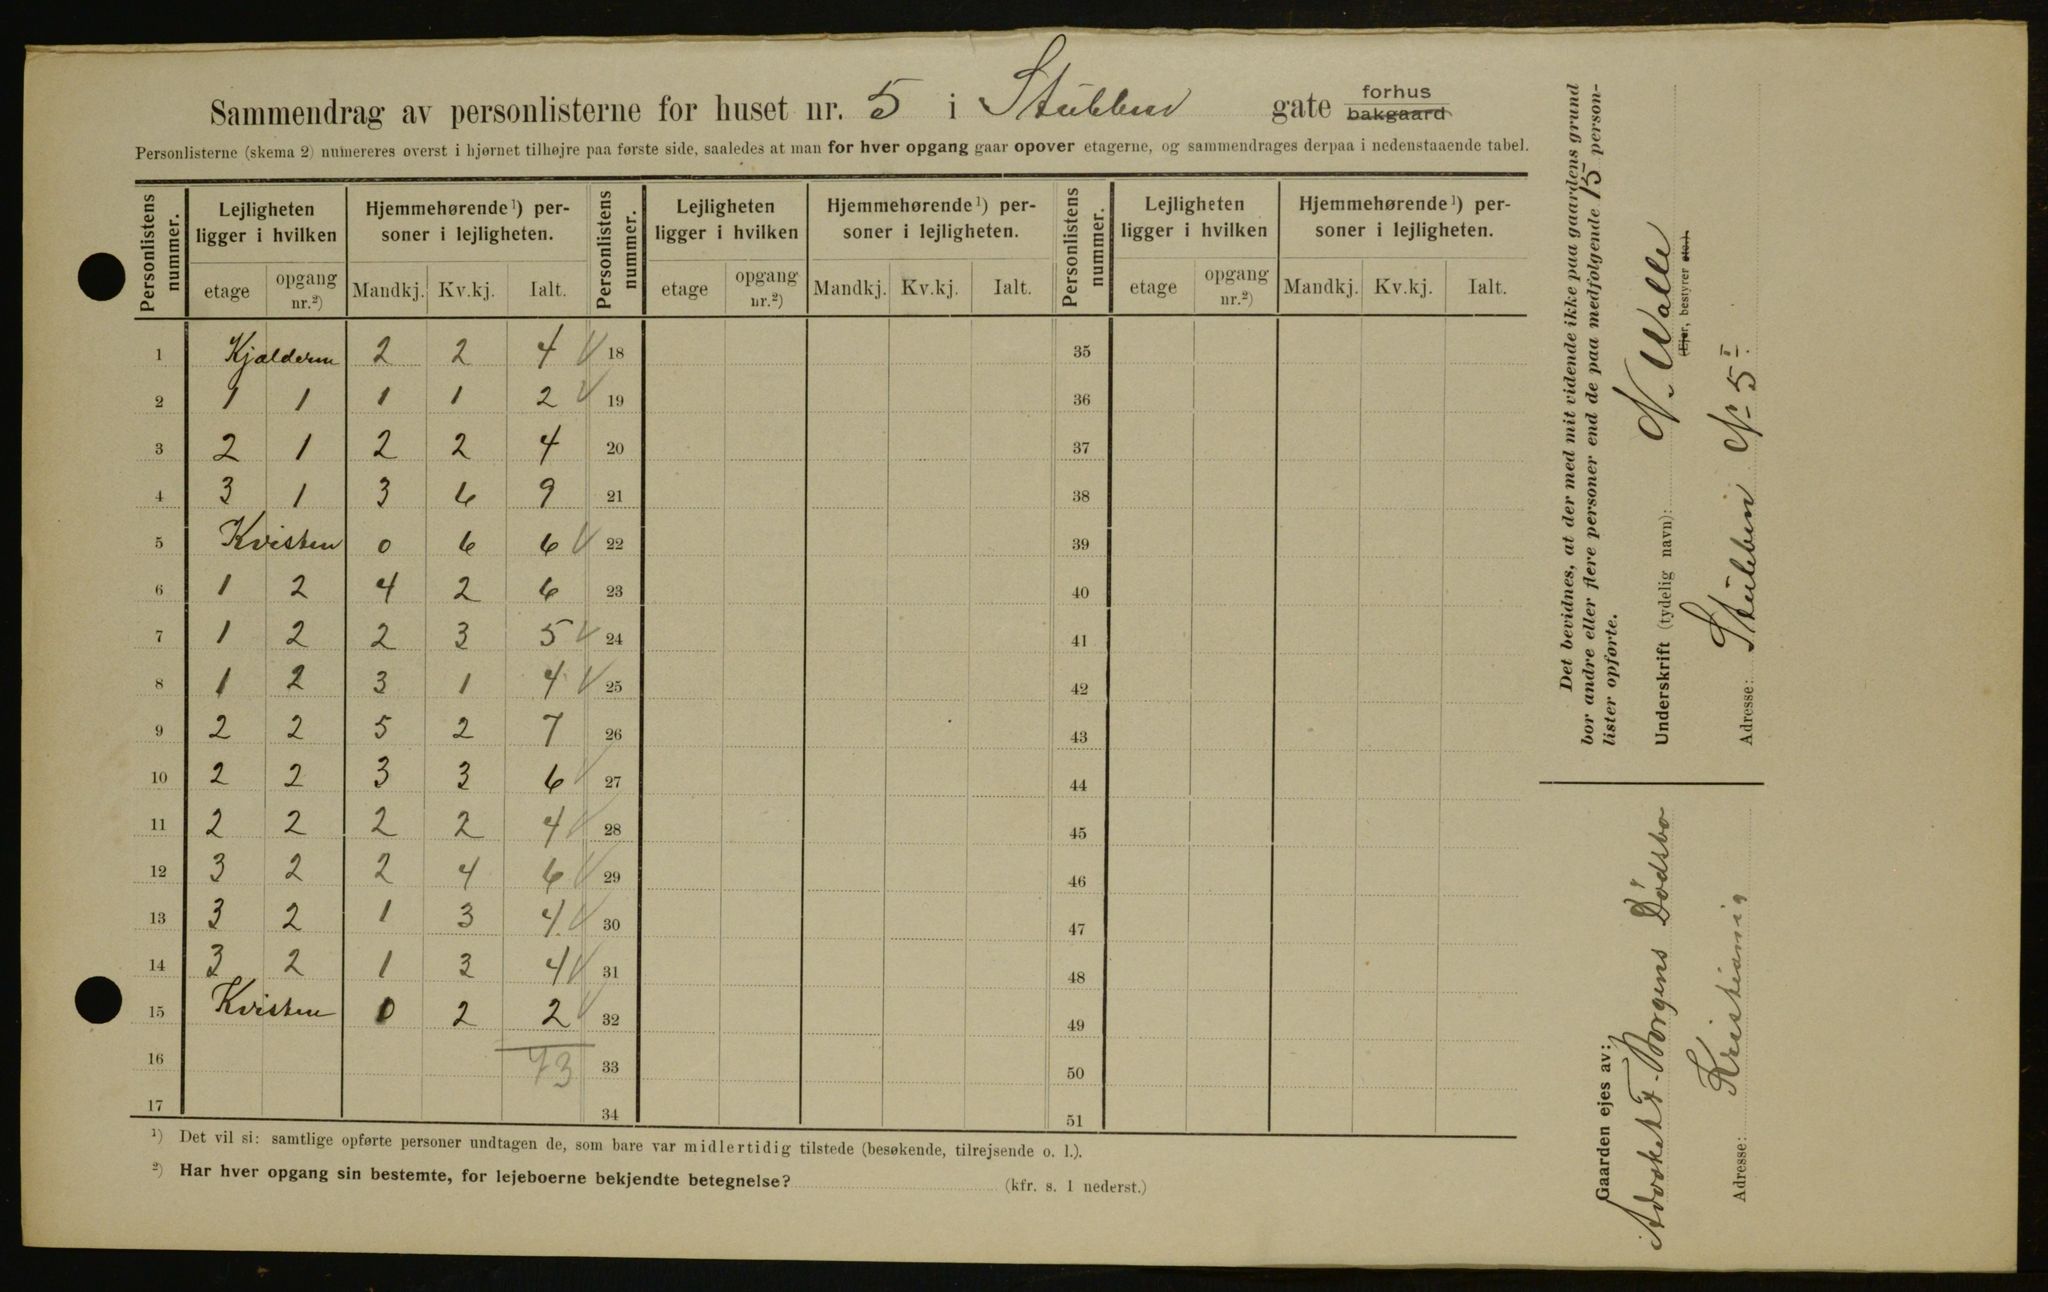 Sammendrag av personlisterne for huset nr. 5 i Stubben gate forhus bakgaard
Personlisterne (skema 2) numereres øverst i hjørnet tilhøjre paa første side, saaledes at man for hver opgang gaar opover etagerne, og sammendrages derpaa i nedenstaaende tabel.
Personlistens nummer. Lejligheten ligger i hvilken Hjemmehørende ¹) personer i lejligheten. Personlistens nummer. Lejligheten ligger i hvilken Hjemmehørende ¹) personer i lejligheten. Personlistens nummer. Lejligheten ligger i hvilken Hjemmehørende ¹) personer i lejligheten.
etage opgang nr.²) Mandkj. Kv.kj. Ialt. etage opgang nr.²) Mandkj. Kv.kj. Ialt. etage opgang nr.²) Mandkj. Kv.kj. Ialt.
1 Kjælderen 2 2 4 18 35
2 1 1 1 1 2 19 36
3 2 1 2 2 4 20 37
4 3 1 3 6 9 21 38
5 Kvisten 0 6 6 22 39
6 1 2 4 2 6 23 40
7 1 2 2 3 5 24 41
8 1 2 3 1 4 25 42
9 2 2 5 2 7 26 43
10 2 2 3 3 6 27 44
11 2 2 2 2 4 28 45
12 3 2 2 4 6 29 46
13 3 2 1 3 4 30 47
14 3 2 1 3 4 31 48
15 Kvisten 0 2 2 32 49
16 73 33 50
17 34 51
¹) Det vil si: samtlige opførte personer undtagen de, som bare var midlertidig tilstede (besøkende, tilrejsende o. l.).
²) Har hver opgang sin bestemte, for lejeboerne bekjendte betegnelse? (kfr. s. 1 nederst.)
Det bevidnes, at der med mit vidende ikke paa gaardens grund
bor andre eller flere personer end de paa medfølgende 15 person-
lister opførte.
Underskrift (tydelig navn): N. Walle
(Ejer, bestyrer etc.)
Adresse: Stubben No 5 I
Gaarden ejes av:
Advokat F. Borgens Dødsbo
Adresse: Kristiania